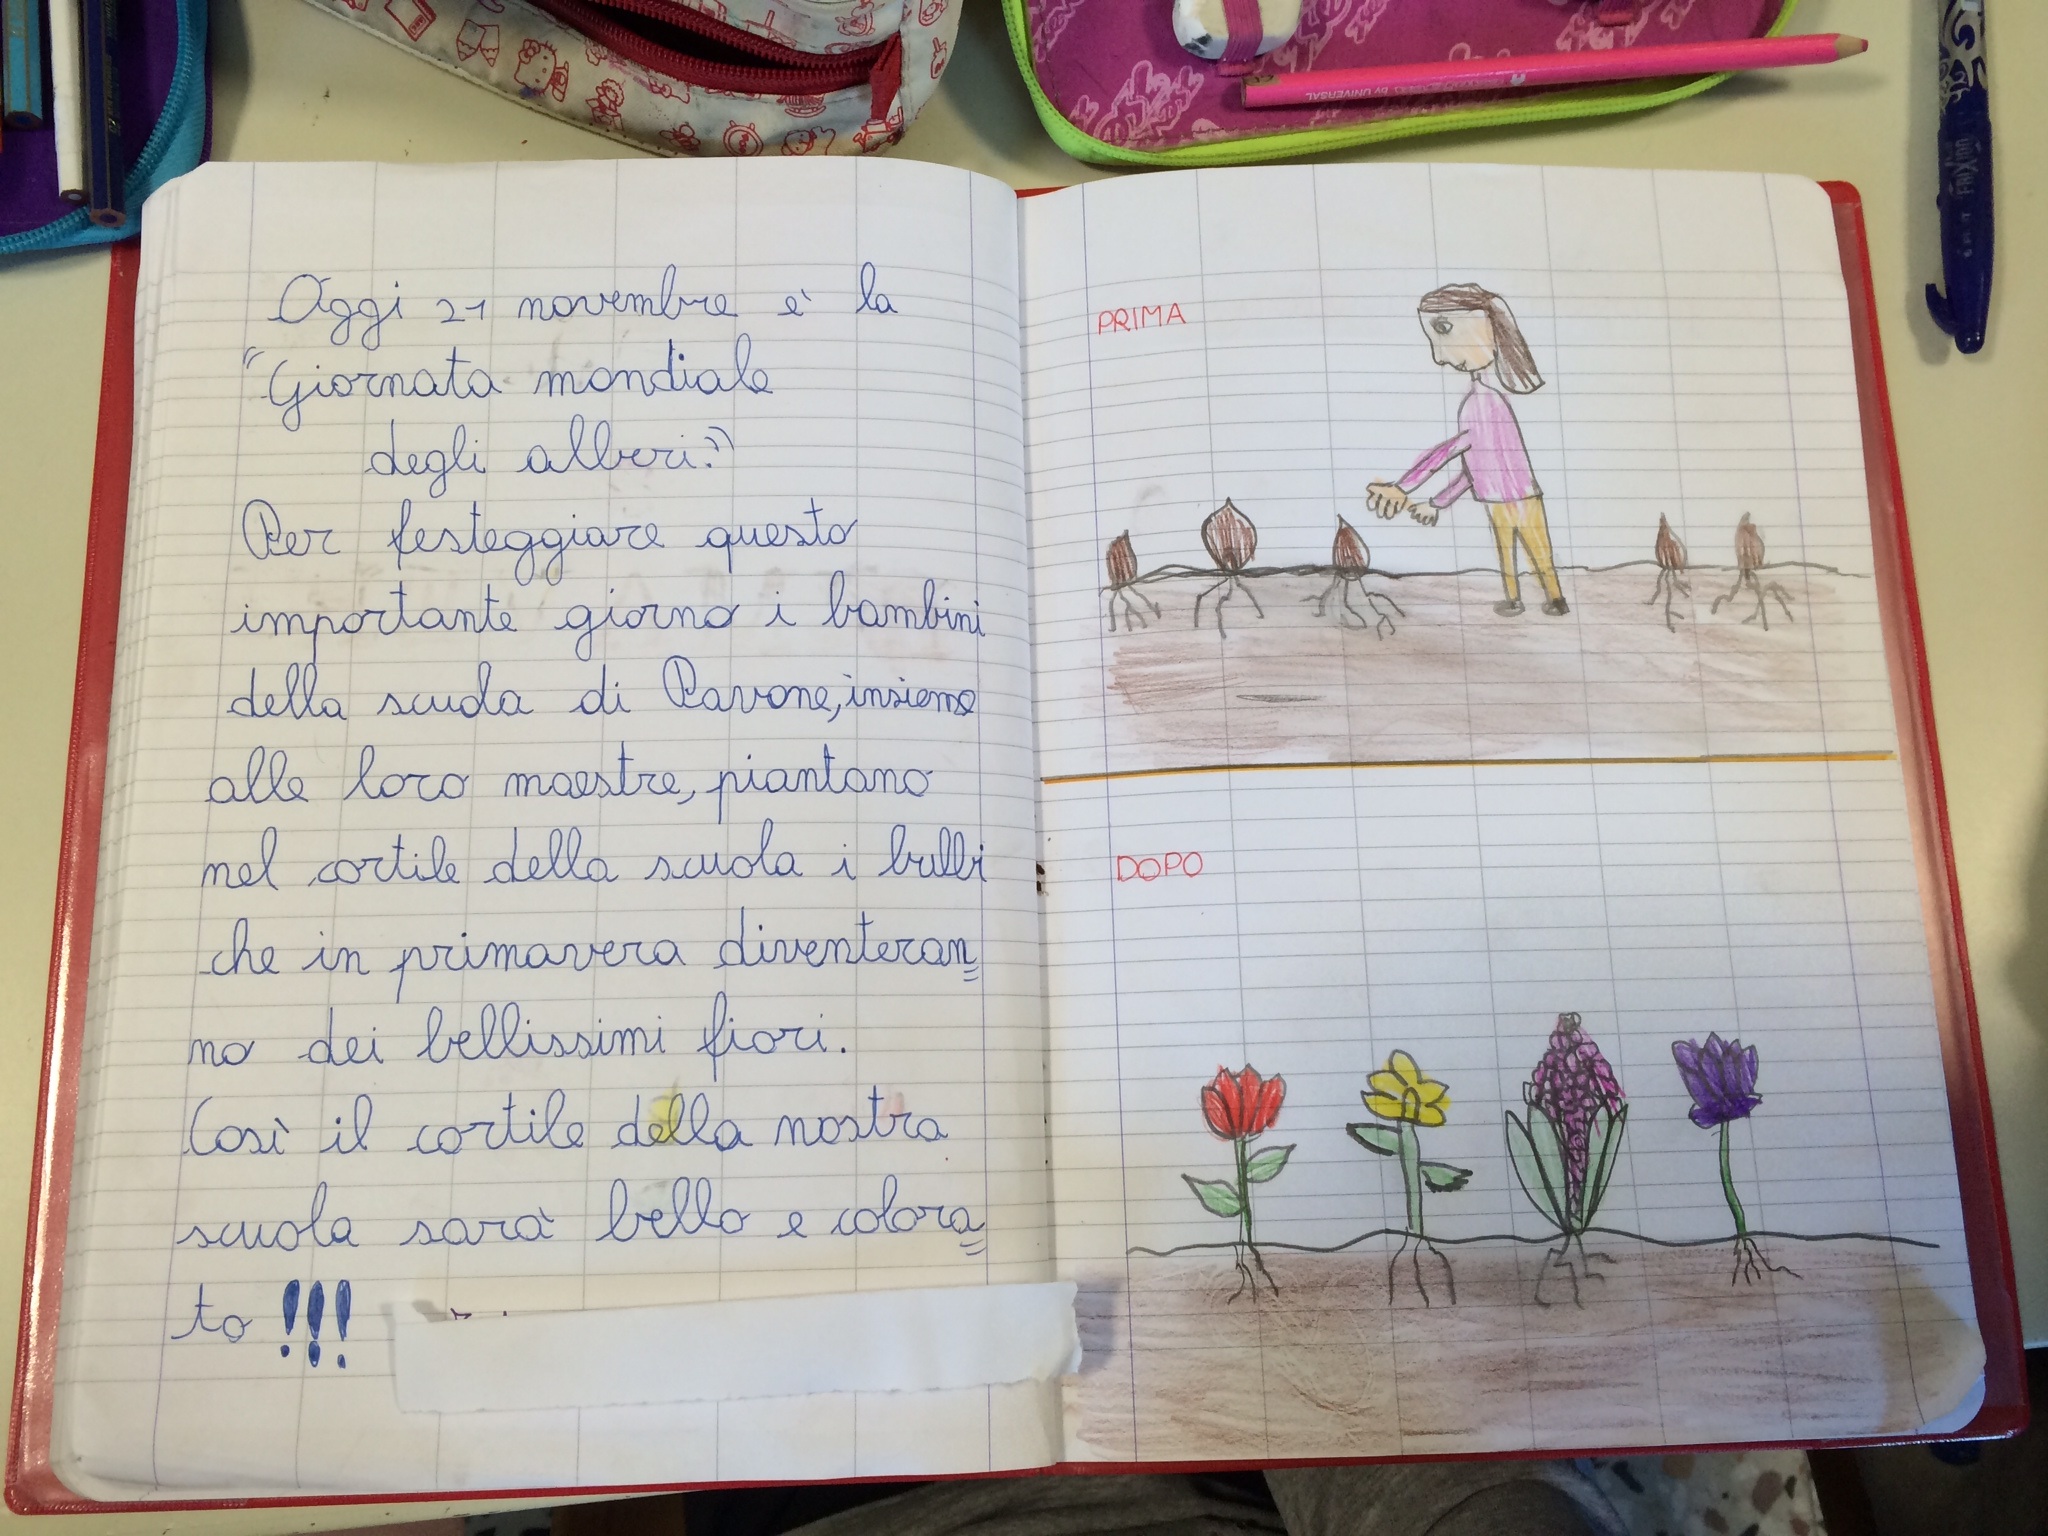 Oggi 21 novembre è la
"Giornata mondiale
degli alberi."
Per festeggiare questo
importante giorno i bambini
della scuola di Pavone, insieme
alle loro maestre, piantano
nel cortile della scuola i bulbi
che in primavera diventeran=
no dei bellissimi fiori.
Così il cortile della nostra
scuola sarà bello e colora=
to !!!
PRIMA
DOPO
BY UNIVERSAL
FRIXION